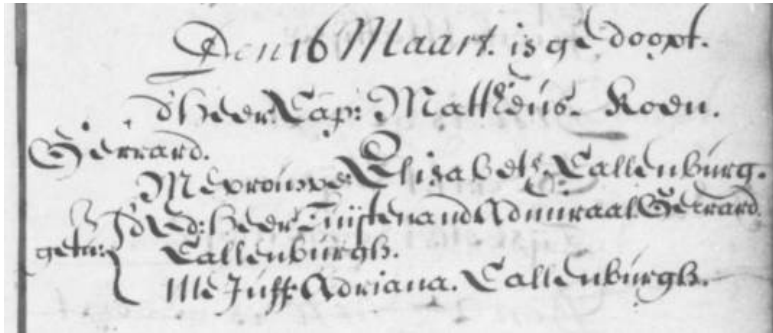 Den 16 Maart. is gedoopt.
d'heer Cap: Mattheus. Koen.
Gerrard.
Mevrouwe Elisabeth. Callenburg.
d'Ed: heer Luijtenand Admiraal Gerrard
getu: Callenburgh.
Me Juffr Adriana. Callenburgh.